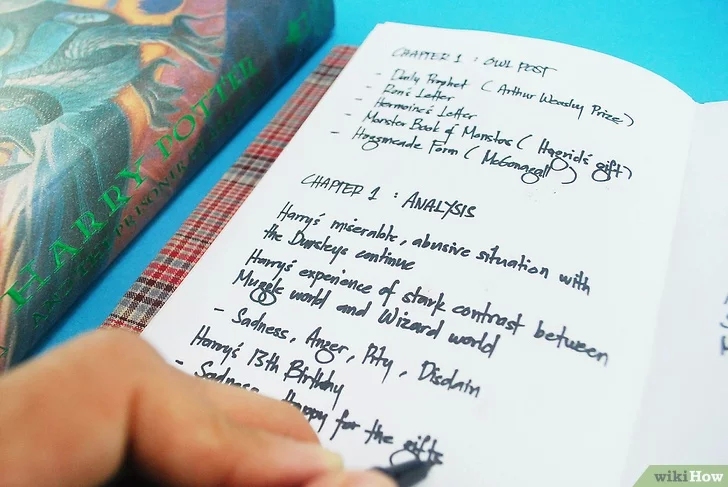 HARRY POTTER
AND THE PRISONER OF
CHAPTER 1 : OWL POST
- Daily Prophet (Arthur Weasley Prize)
- Ron's Letter
- Hermoine's Letter
- Monster Book of Monstos (Hagrid's gift)
- Hogsmeade Form (McGonagall)
CHAPTER 1 : ANALYSIS
Harry's miserable, abusive situation with
the Dursleys continue
Harry's experience of stark contrast between
Muggle world and Wizard world
- Sadness, Anger, Pity, Disdain
Harry's 13th Birthday
- Sadness happy for the gifts
wikiHow